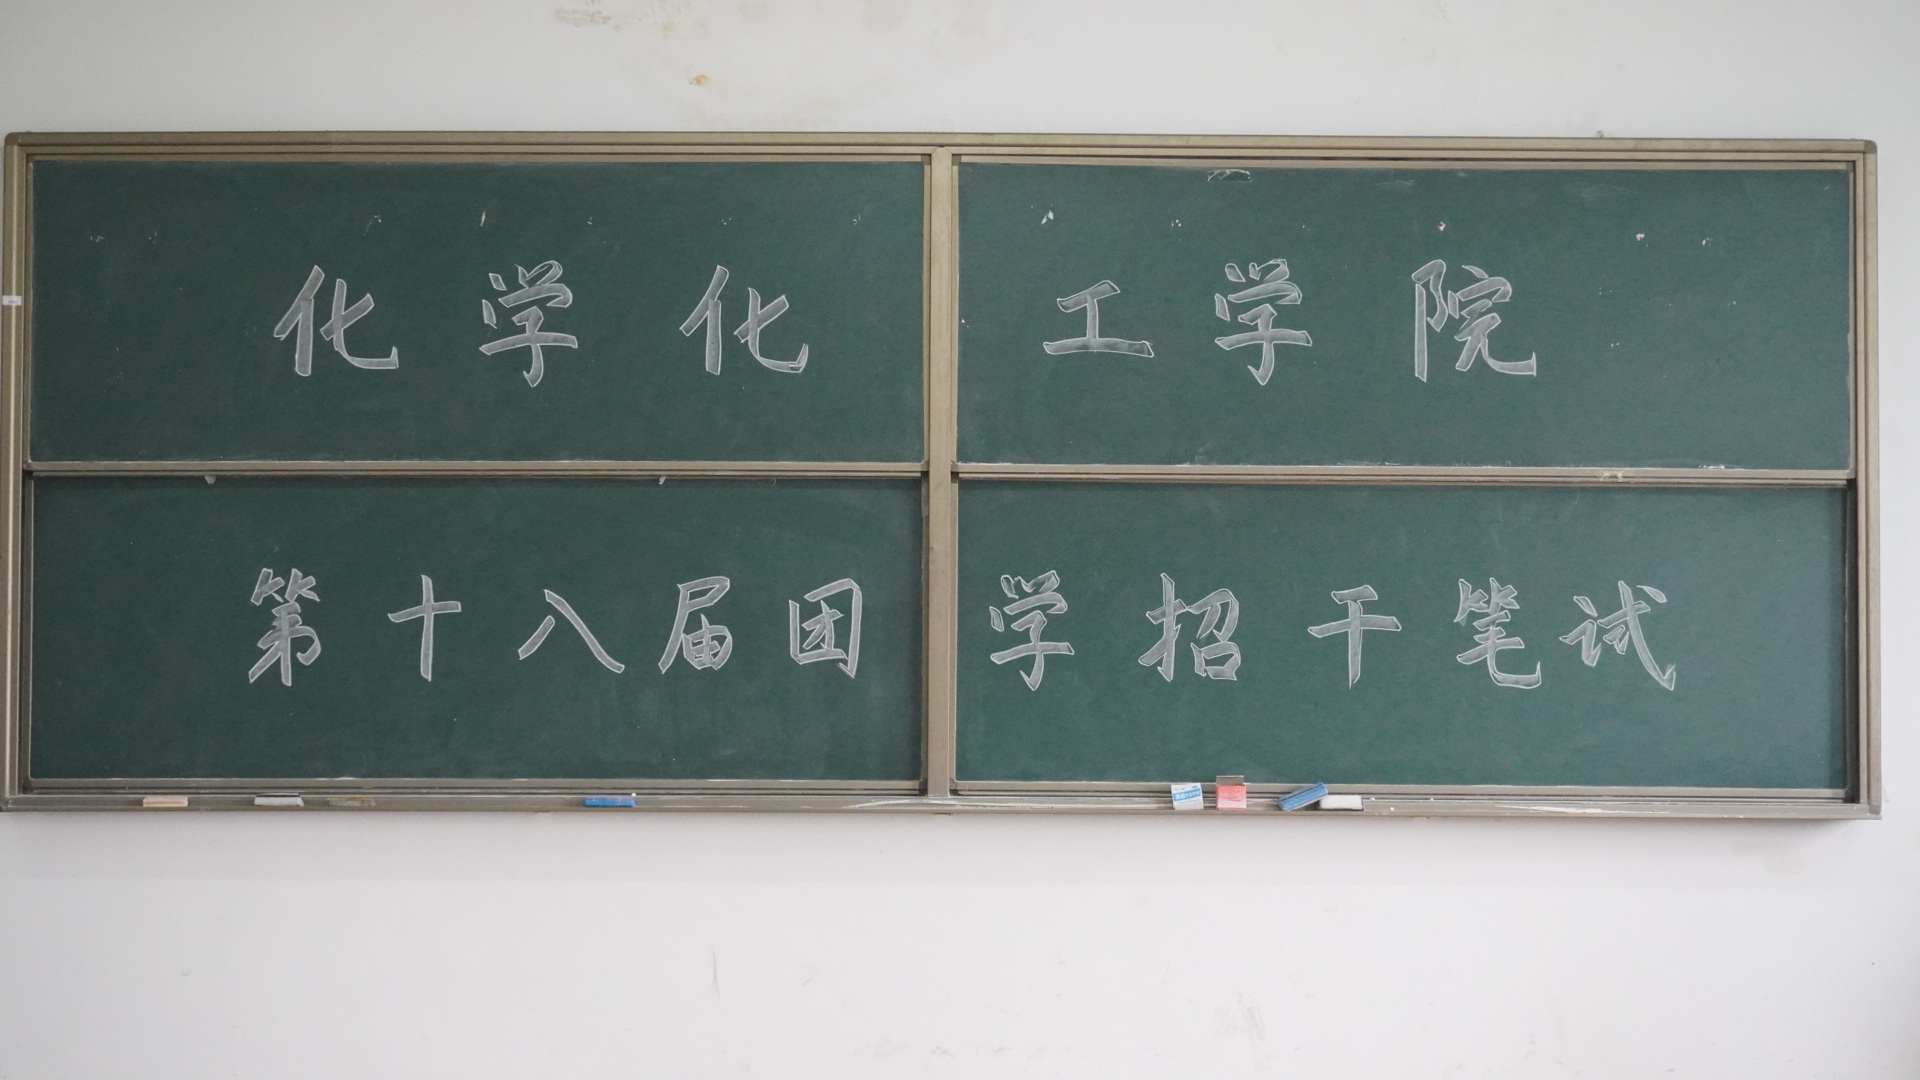 化学化工学院
第十八届团学招干笔试